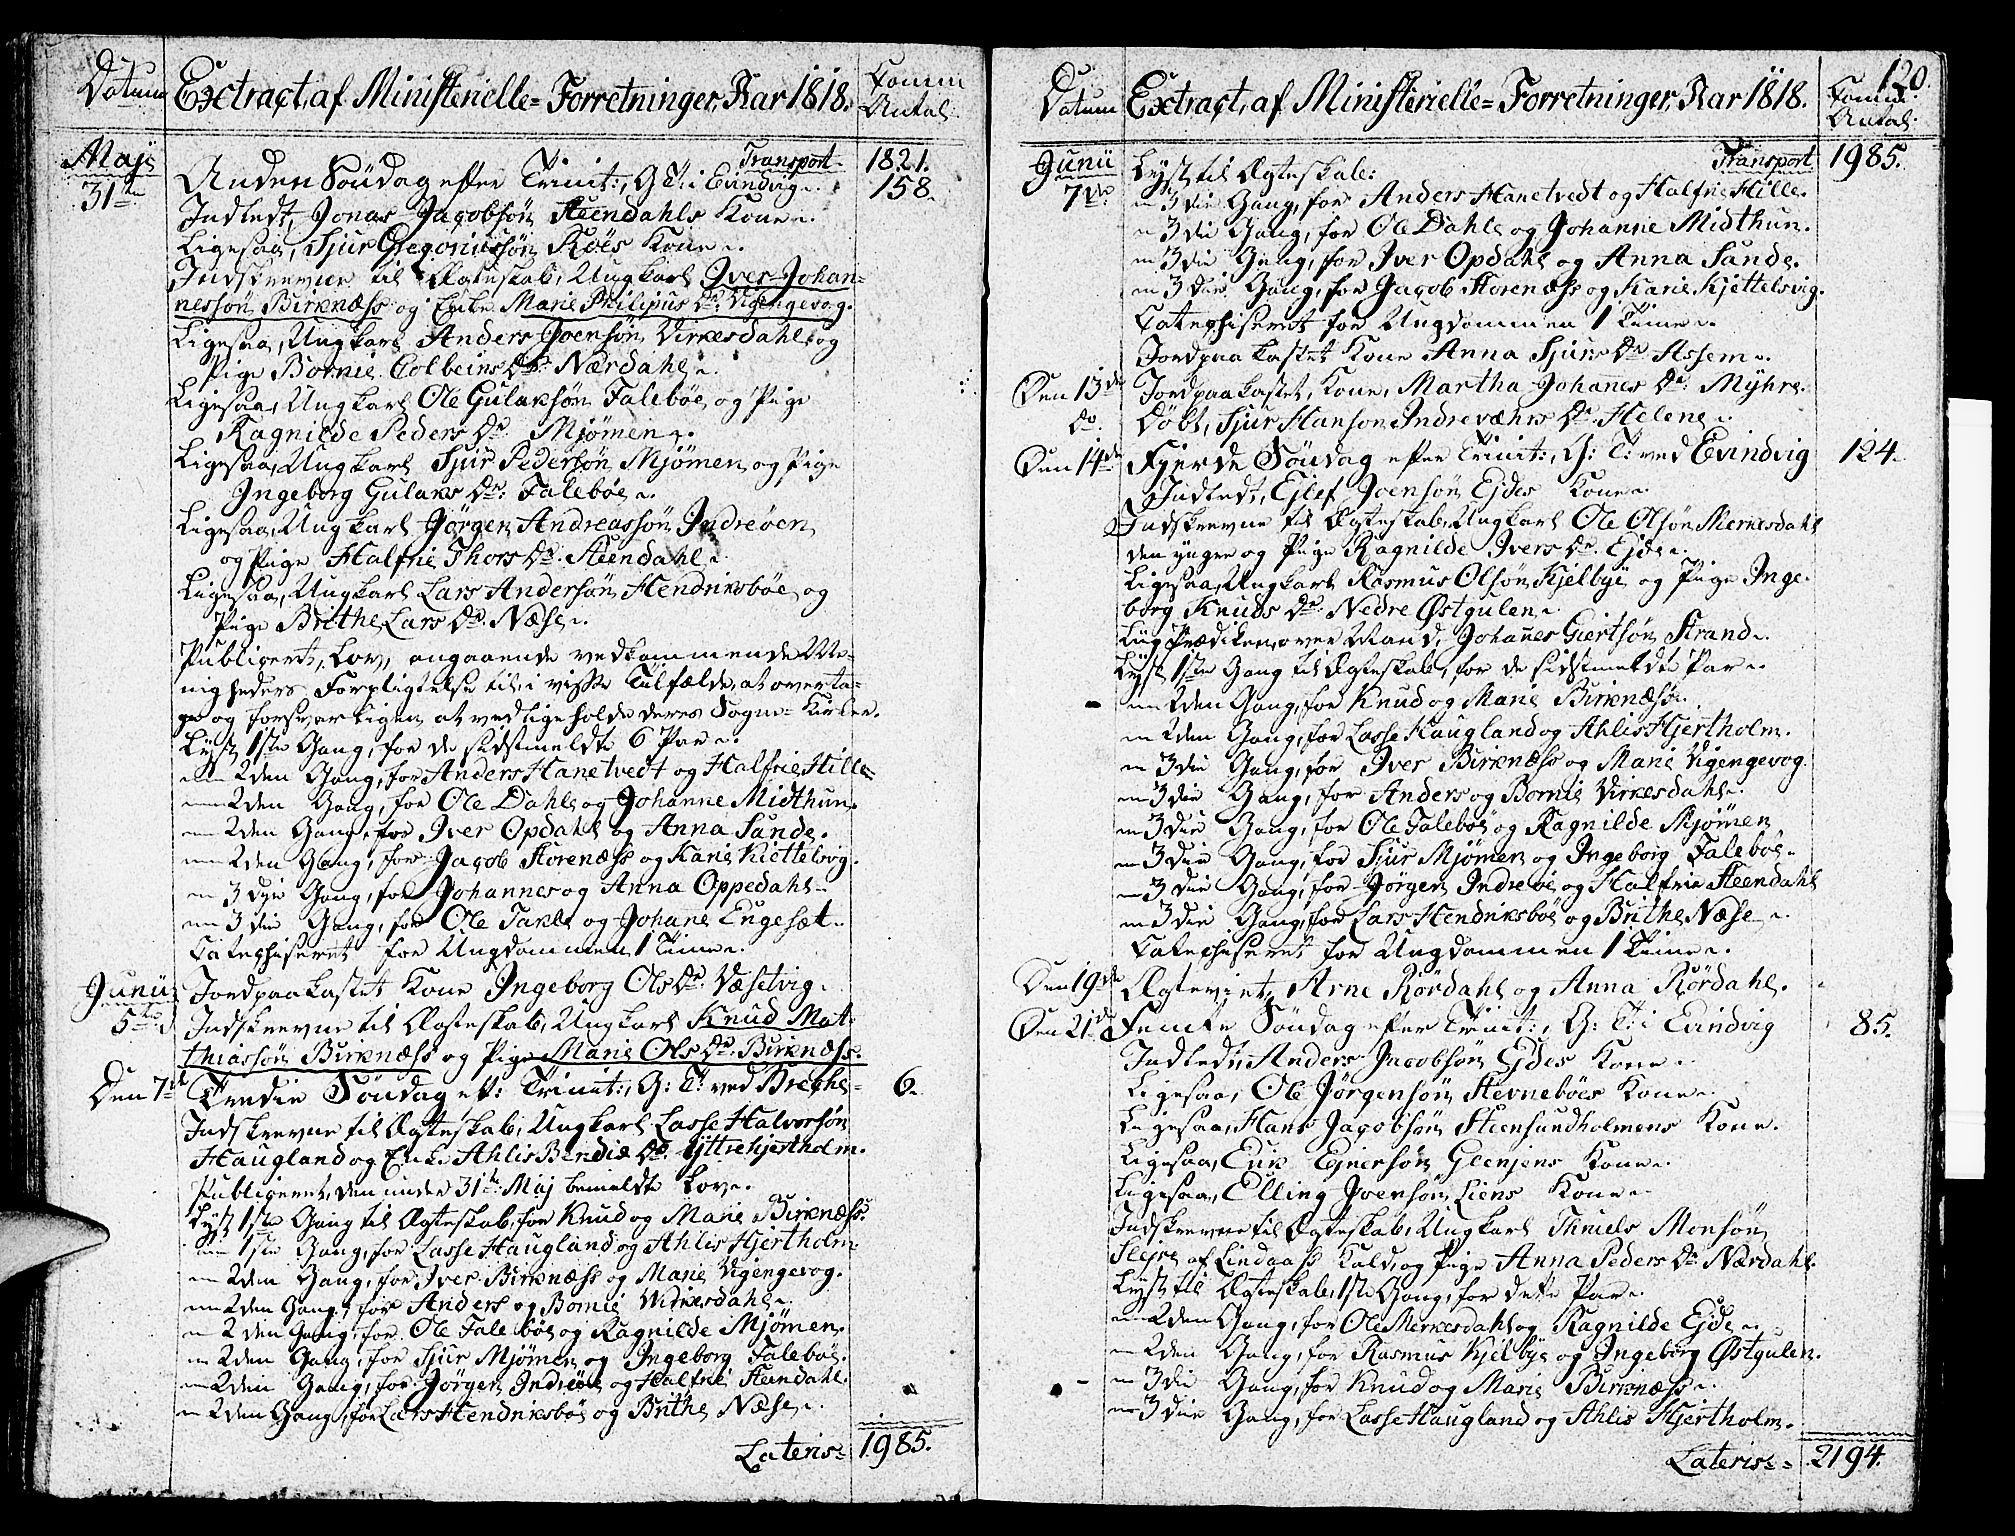 Datum
Extract, af Ministerielle = Forretninger, Aar 1818.
Comm: Antal.
Maji
Transport 1821.
31te
Anden Söndag efter Trinit:, G T: i Evindvig.
158.
Indledt, Jonas Jacobsön Steendahls Kone.
Ligesaa, Sjur Gregoriussön Röes Kone.
Indskrevne til Ægteskab, Ungkarl Iver Johan-
nessön Birknæss og Enke Marie Philipus Dr: Vigengevog.
Ligesaa, Ungkarl Anders Joensön Virkesdahl, og
Pige Bornie Colbeins Dr: Nærdahl.
Ligesaa, Ungkarl Ole Gulaksön Faleböe, og Pige
Ragnilde Peders Dr: Mjömen.
Ligesaa, Ungkarl Sjur Pedersön Mjömen og Pige
Ingeborg Gulaks Dr: Faleböe.
Ligesaa, Ungkarl Jörgen Andreassön Indreöen,
og Pige Halfrie Thors Dr. Steendahl.
Ligesaa, Ungkarl Lars Andersön Hendriksböe, og
Pige Brithe Lars Dr. Næse.
Publicert, Lov, angaaende vedkommende Me-
nigheders Forpligtelse til, i visse Tilfælde, at overta-
ge og forsvarligen at vedligeholde deres Sogne-Kirker.
Lyst 1ste Gang, for de sidstmeldte 6 Par.
— 2den Gang, for Anders Hanetvedt og Halfrie Hille
— 2den Gang, for Ole Dahl og Johanne Midthun.
— 2den Gang, for Iver Opdahl og Anna Sande.
— 2den Gang, for Jacob Storenæss og Karie Kiettelsvig.
— 3die Gang, for Johannes og Anna Oppedahl
— 3die Gang, for Ole Takle og Johane Engesæt.
Catechiseret for Ungdommen 1 Time.
Junii
Jordpaakastet Kone Ingeborg Ols Dr. Væsetvig.
5te
Indskrevne til Ægteskab, Ungkarl Knud Mat-
thiassön Birknæss og Pige Marie Ols Dr. Birknæss.
Den 7de
Tredie Söndag ef: Trinit:, G: T: ved Brekke
6.
Indskrevne til Ægteskab, Ungkarl Lasse Halvorsön
Haugland og Enke Ahlis Bendix Dr. Yttrehjertholm.
Publiceret, den under 31te Maj bemeldte Lov.
Lyst 1ste Gang til Ægteskab, for Knud og Marie Birknæss.
— 1ste Gang, for Lasse Haugland og Ahlis Hjertholm
— 2den Gang, for Iver Birknæss og Marie Vigengevog.
— 2den Gang, for Anders og Bornie Virkesdahl.
— 2den Gang, for Ole Faleböe og Ragnilde Mjömen.
— 2den Gang, for Sjur Mjömen og Ingeborg Faleböe.
— 2den Gang, for Jörgen Indreöe og Halfrie Steendahl.
— 2den Gang, for Lars Hendriksböe og Brithe Næse.
Lateris 1985.
120.
Datum
Extract, af Ministerielle = Forretninger, Aar 1818.
Comm: Antal.
Junii
Transport 1985.
7de
Lyst til Ægteskab:
— 3die Gang, for Anders Hanetvedt og Halfrie Hille.
— 3die Gang, for Ole Dahl og Johanne Midthun.
— 3die Gang, for Iver Opdahl og Anna Sande.
— 3die Gang, for Jacob Storenæss og Karie Kjettelsvig.
Catechiseret for Ungdommen 1 Time.
Jordpaakastet Kone Anna Sjurs Dr Assem.
Den 13de
Jordpaakastet, Kone, Martha Johanes Dr: Myhre.
do.
Döbt, Sjur Hanson Indrevæhrs Dr. Helene.
Den 14de
Fjerde Söndag efter Trinit:, G: T: ved Evindvig
124.
Indledt, Ejlef Joensön Ejdes Kone.
Indskrevne til Ægteskab, Ungkarl Ole Olsön Merkesdahl
den yngre og Pige Ragnilde Ivers Dr. Ejde.
Ligesaa, Ungkarl Rasmus Olsön Kjelbye og Pige Inge-
borg Knuds Dr. Nedre Östgulen.
Liig Prædiken, over Mand, Johannes Giertsön Strand.
Lyst 1ste Gang til Ægteskab, for de sidstmeldte Par.
— 2den Gang, for Knud og Marie Birknæss.
— 2den Gang, for Lasse Haugland og Ahlis Hjertholm.
— 3die Gang, for Iver Birknæss og Marie Vigengevog.
— 3die Gang, for Anders og Bornie Virkesdahl.
— 3die Gang, for Ole Faleböe og Ragnilde Mjömen
— 3die Gang, for Sjur Mjömen og Ingeborg Faleböe.
— 3die Gang, for Jörgen Indreöe og Halfrie Steendahl
— 3die Gang, for Lars Hendriksböe og Brithe Næse.
Catechiseret for Ungdommen 1 Time.
Den 19de
Ægteviet, Arne Rördahl og Anna Rördahl.
Den 21de
Femte Söndag efter Trinit:, G: T: i Evindvig
85.
Indledt, Anders Jacobsön Ejdes Kone.
Ligesaa, Ole Jörgensön Stevneböes Kone.
Ligesaa, Hans Jacobsön Steensundholmens Kone.
Ligesaa, Erik Ejnersön Glenjens Kone.
Ligesaa, Elling Joensön Liens Kone.
Indskrevne til Ægteskab, Ungkarl Thniels Monsön
Slejre af Lindaass Kald, og Pige Anna Peders Dr Nærdahl.
Lyst til Ægteskab, 1ste Gang, for dette Par.
— 2den Gang, for Ole Merkesdahl og Ragnilde Ejde.
— 2den Gang, for Rasmus Kjelbye og Ingeborg Östgulen.
— 3die Gang, for Knud og Marie Birknæss.
— 3die Gang, for Lasse Haugland og Ahlis Hjertholm.
Lateris 2194.